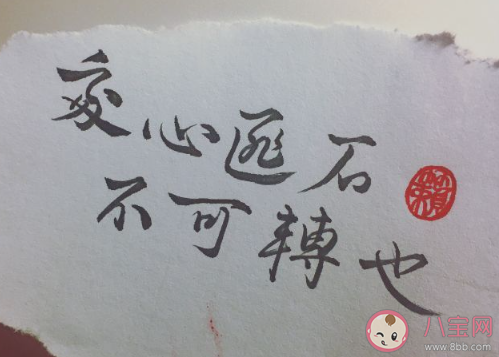 心匪石
不可轉也
八宝网
www.8bb.com